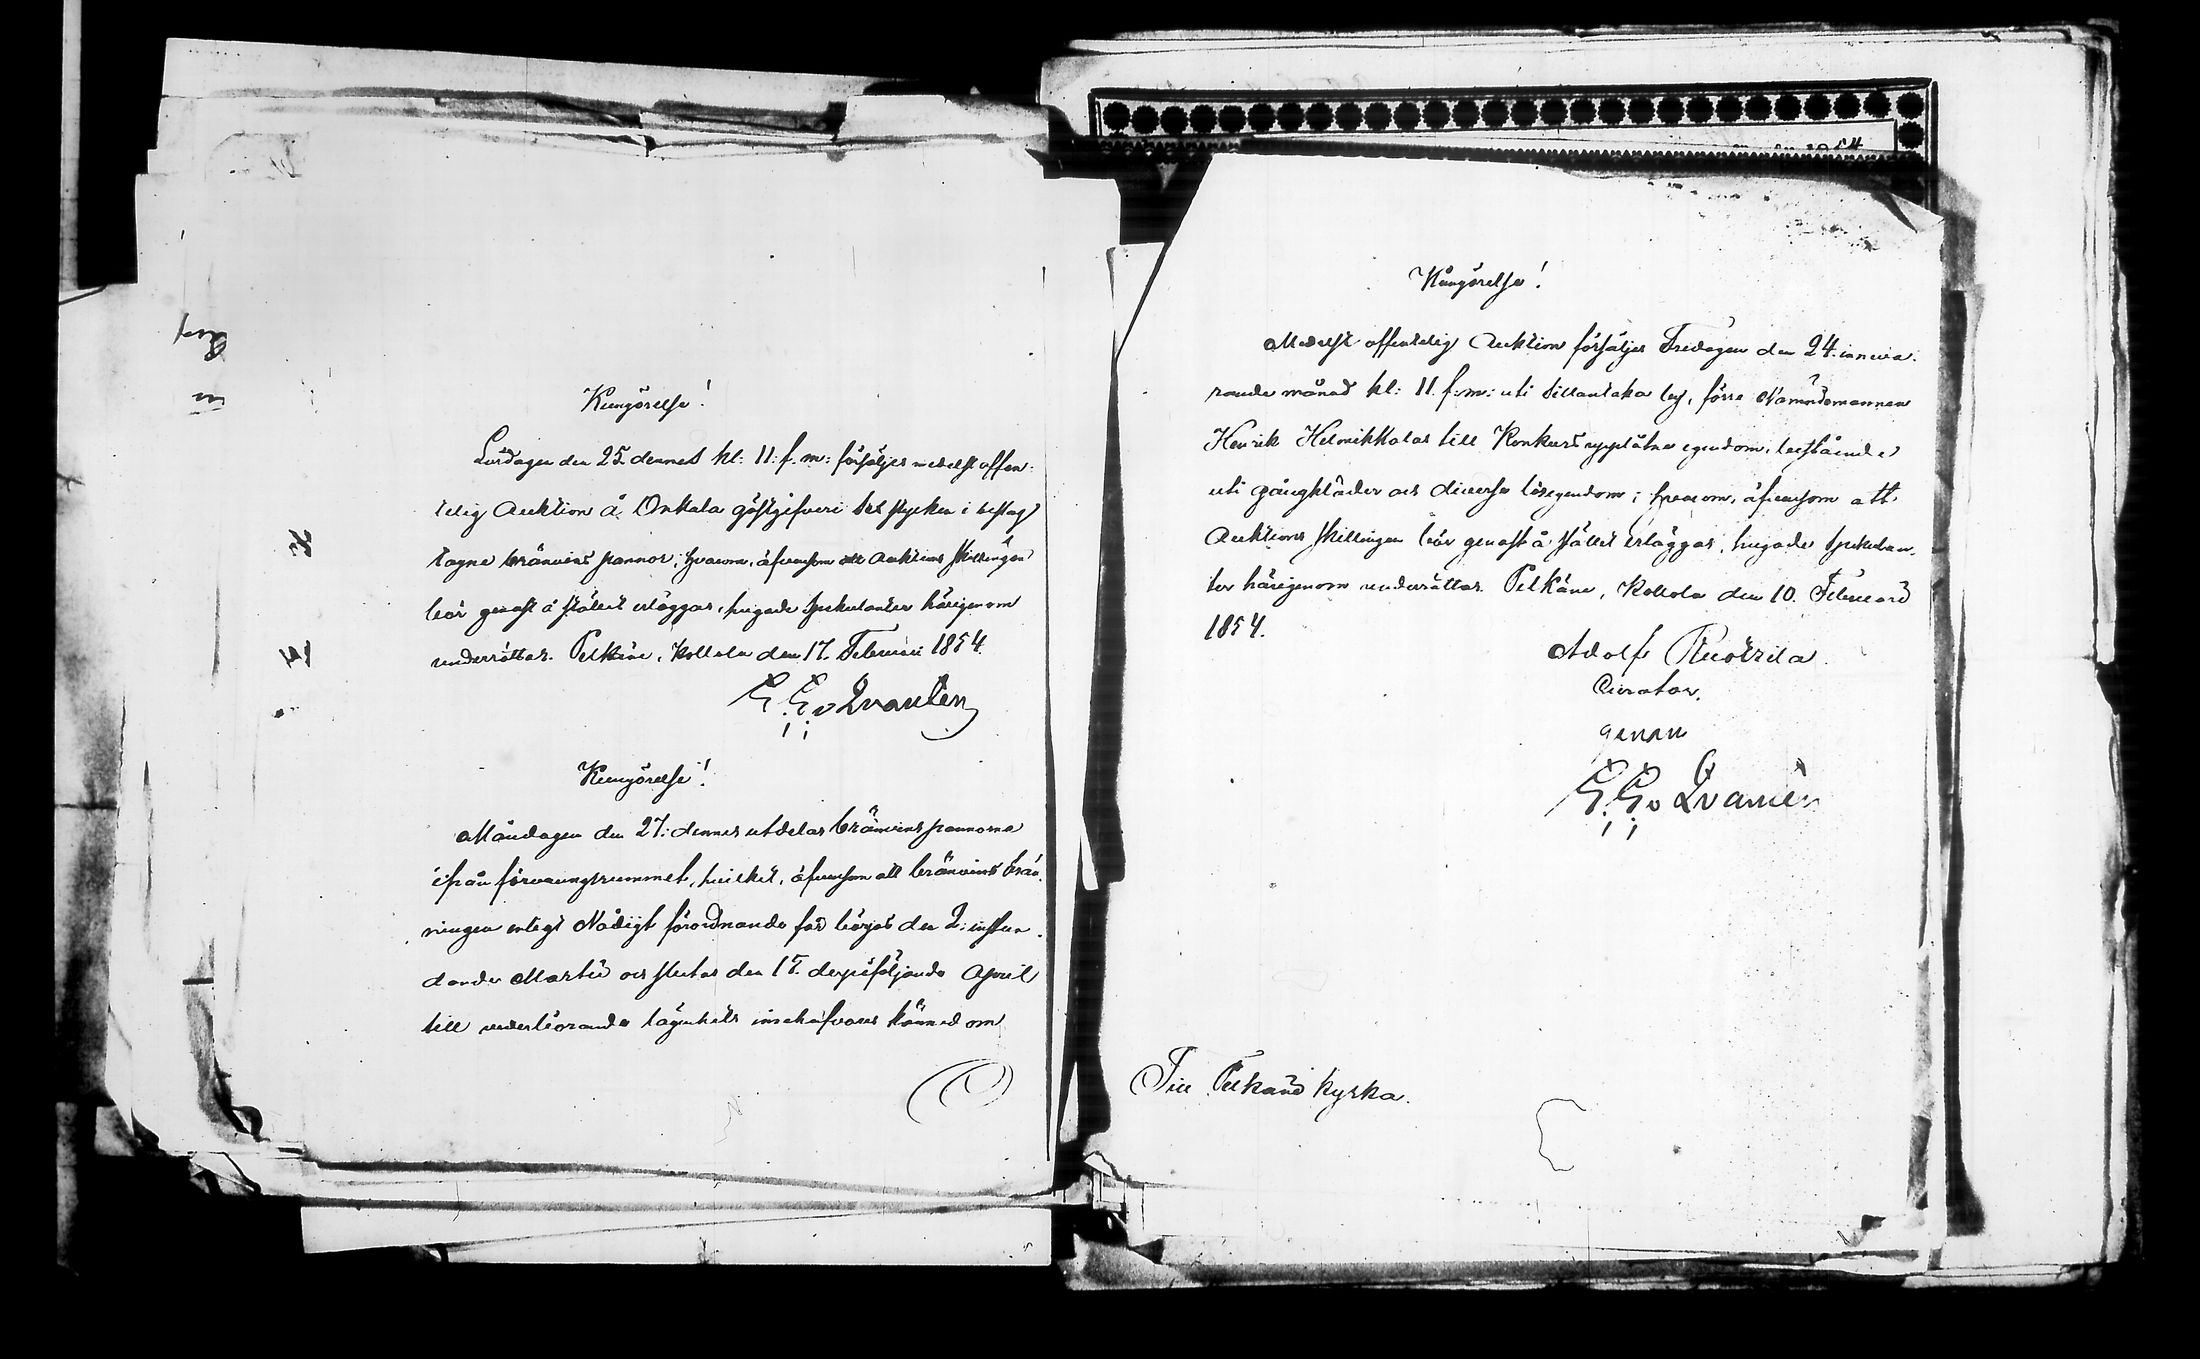 Kungörelse!
Lördagen den 25. dennes kl: 11. f. m: försäljes medelst offen-
telig Auktion å Onkala gästgifveri stycken i beslag
tagne bränvins pannor; hvarom, äfvensom att Auktions skillingen
bör genast å stället erläggas, hugade spekulanter härigenom
underrättas. Pelkäne, Kollola den 17. Februari 1854.
G. G. v Qvanten
Kungörelse!
Måndagen den 27. dennes utdelas bränvins pannorna
ifrån förvaringsrummet, hvilket, äfvensom att bränvins brän-
ningen enligt Nådigt förordnande får börjas den 2: instun-
dande Martii och slutas den 15. derpåföljande April
till vederbörande lägenhets innehafvares kännedom
Kungörelse!
Medelst offentelig Auktion försäljes Fredagen den 24. inneva-
rande månad kl: 11. f: m: uti by, förre Nämndemannen
Henrik till Konkurs upplåtne egendom, bestående
uti gångkläder och diverse lösegendom; hvarom, äfvensom att
Auktions skillingen bör genast å stället erläggas, hugade spekulan-
ter härigenom underrättas. Pelkäne, Kollola den 10. Februari
1854.
Adolf
Curator.
genom
G. G. v Qvanten
Till Pelkäne kyrka.